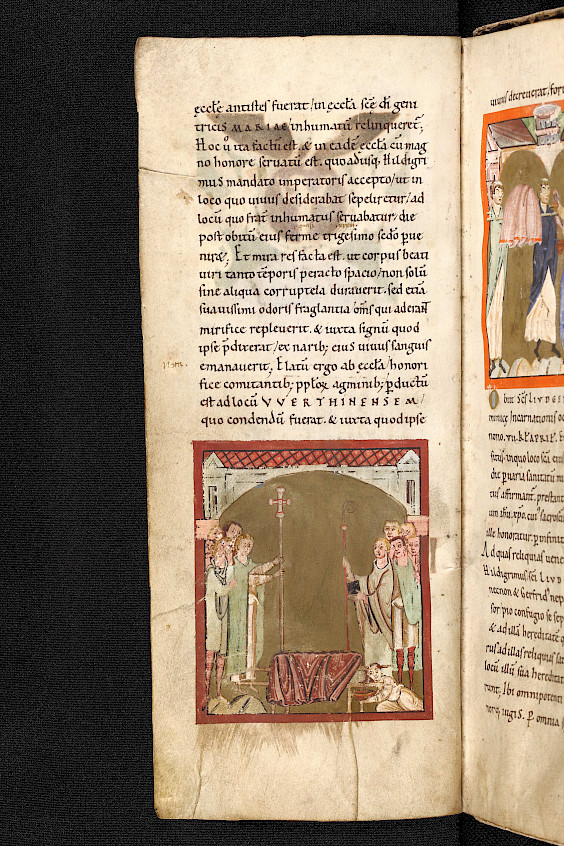 ęccłę antistes fuerat / in ęccła scę di geni
tricis MARIAE inhumatū relinqueret;
Hoc ů ita factū est. & in eadē ęccła cū mag
no honore seruatū est. quoadusq; Hildigri
mus mandato imperatoris accepto / ut in
loco quo uiuus desiderabat sepeliretur / ad
locū quo frat̄ inhumatus seruabatur, die
post obitū eius ferme trigesimo sedo p̄ue
niret; Et mira res facta est. ut corpus beati
uiri tanto tēporis peracto spacio / non solū
sine aliqua corruptela durauerit. sed etiā
suauissimi odoris fraglantia om̄s qui aderant
mirifice repleuerit. & iuxta signū quod
ipse p̄dixerat / ex narib; eius uiuus sanguis
emanauerit; Elatū ergo ab ęccła / honori
fice comitantib; pplorū agminib; pductū
est ad locū VVERTHINENSEM /
quo condendū fuerat. & iuxta quod ipse
uiuus decreuerat / for
Obiit scs LIVDG
minicę incarnationis
nono. VII. KŁ APRIĿ.
sitis. in quo loco
die p uaria sanitatū
eius affirmant. prestant
ille honoratur. p infinit
Ad quas reliquias uene
Hildigrimus. sci LIVD
necnon & Gerfrid' nep
& ad illā hereditatē
rus ad illas reliquias
locū illū sua heredita
rent. Ibi omnipotenti
iugis. P omnia